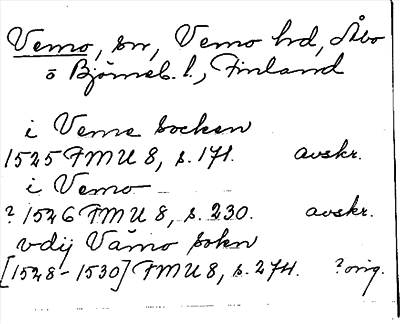 Vemo, sn, Vemo hd, Åbo
o Björneb. l., Finland
i Veme socken
1525 FMU 8, s. 171. avskr.
i Vemo
? 1526 FMU 8, s. 230. avskr.
vdij Vämo sokn
[1528-1530] FMU 8, s. 274. ? orig.